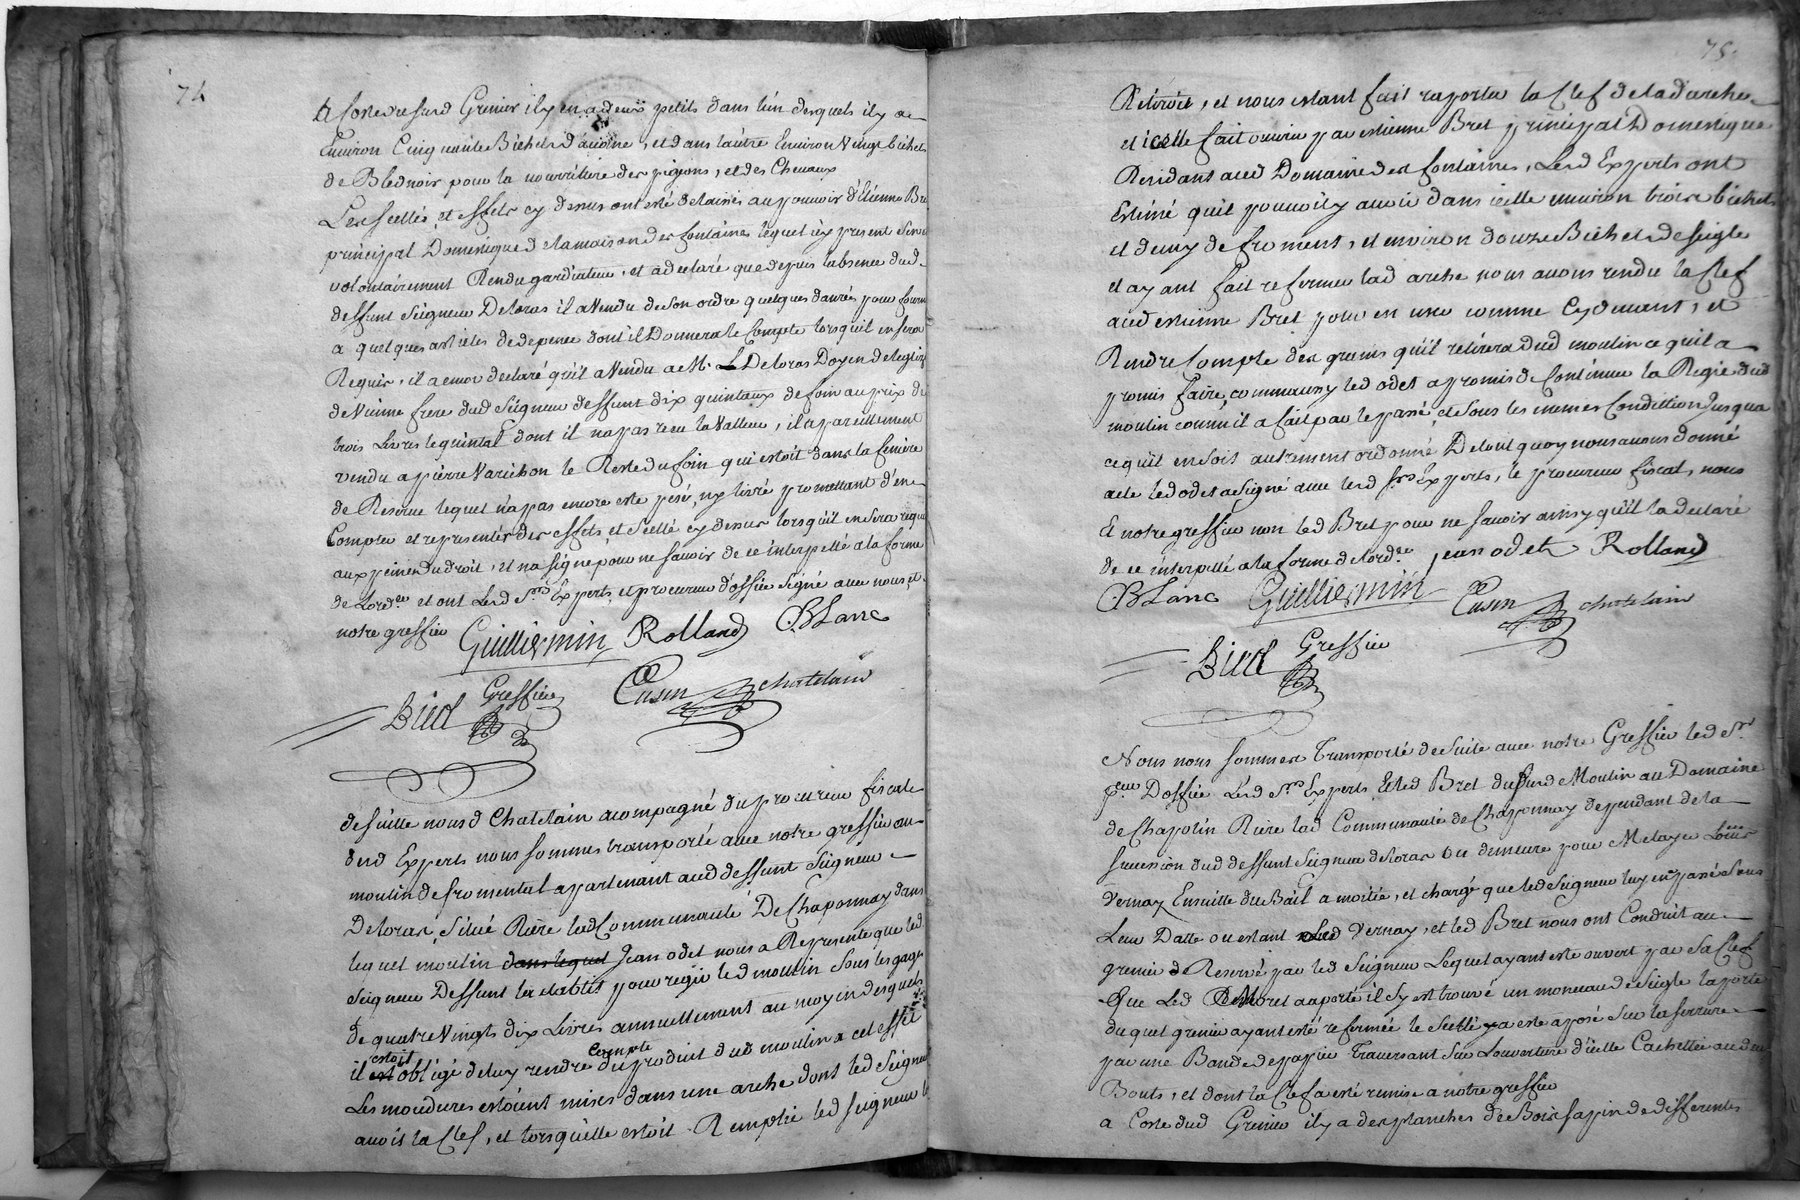 74
A Costé dusurd Grenier il y en a deux petits dans l'un desquels il y a
Environ Cinquante Bichets d'avoine, et dans l'autre Environ Vingt bichets
de Bled noir pour la nourriture des pigeons, et des Chevaux
Les scellés et effets cy dessus ont esté delaissés au pouvoir d'étienne Bret
principal Domestique de la maison des fontaines lequel icy present s'est
volontairement Rendu gardiateur, et a declaré que depuis l'absence dud
deffunt seigneur Deloras il a Vendu de son ordre quelques danrés pour fournir
a quelques articles de depence dont il Donnera le Compte lorsquil en sera
Requis, il a encor declaré qu'il a Vendu a M. L Deloras Doyen de leglise
de Vienne frere dud seigneur deffunt dix quintaux de foin au prix de
trois Livres le quintal dont il n'a pas receu la Valleur, il a pareillement
vendu a pierre Varichon le Reste du foin qui estoit dans la feniere
de Reserve lequel n'a pas encore esté pesé, ny livré promettant d'en
Compter et representer des effets, et scellé cy dessus lorsqu'il en sera requis
aux peines du droit, et n'a signé pour ne sçavoir de ce interpellé a la forme
de Lord.ce et ont Lesd S.rs Experts, et procureur d'office signé avec nous, et
notre greffier Guilliermin Rolland CBLanc
Bied Greffier Cusin chatelain
de suitte nousd Chatelain acompagné du procureur fiscal
dud Experts nous sommes transporté avec notre greffier au
moulin de fromental appartenant aud deffunt Seigneur
Deloras, Situé Riere lad Communauté De Chaponnay dans
lequel moulin dans lequel Jean odet nous a Represente que led
seigneur Deffunt la etablit pour regir led moulin sous les gages
de quatre Vingts dix Livres annuellement au moyin desquels
il est estoit obligé de luy rendre compte du produit dud moulin a cet effet
Les moudures estoient mises dans une arche dont led Seigneur
avoit la Clef, et lorsqu'elle estoit Remplie led seigneur la
75.
Retiroit, et nous estant fait raporter la Clef de lad arche
et icelle fait ouvrir par estienne Bret principal Domestique
Residant aud Domaine des fontaines, Lesd Experts ont
Estimé quil pouvoit y avoir dans icelle environ trois bichets
et demy de froment, et environ douze Bichets de seigle
et ayant fait refermer lad arche nous avons rendu la Clef
aud estienne Bret pour en user comme Cydevant, et
Rendre Compte des grains qu'il retirera dud moulin ce qu'il a
promis faire, comme aussy led odet a promis de Continuer la Regie dud
moulin comm'il a fait par le passé, et sous les memes Condittion Jusqua
ce qu'il en soit autrement ordonné De tout quoy nous avons donné
acte led odet a signé avec lesd srs Experts, le procureur fiscal, nous
Et notre greffier non led Bret pour ne sçavoir ainsy qu'il la declaré
de ce interpellé a la forme de lord.ce jean odet Rolland
CBLanc Guilliermin Cusin chatelain
Bied Greffier
Nous nous sommes Transporté de suite avec notre Greffier led S.r
p.eur Doffice Lesd S.rs Experts Et led Bret dusurd Moulin au Domaine
de Chapotin Riere lad Communauté de Chaponnay dependant de la
succession dud deffunt Seigneur deloras Ou demeure pour Metayer Louis
Vernay Ensuitte du Bail a moitié, et chargé que led Seigneur luy en passé sous
Leur Datte ou estant Led Vernay, et led Bret nous ont Conduit au
grenier de Reservé par led Seigneur Lequel ayant esté ouvert par sa Clef
Que Led Bret a aporté il s'y est trouvé un monceau de seigle la porte
duquel grenier ayant esté refermée le scellé y a esté aposé sur la serrure
par une Bande de papier Traversant sur Louverture d'icelle Cachettée au deux
Bouts, et dont la Clef a esté remise a notre greffier
a Costé dud Grenier il y a des planches de Bois sappin de differentes